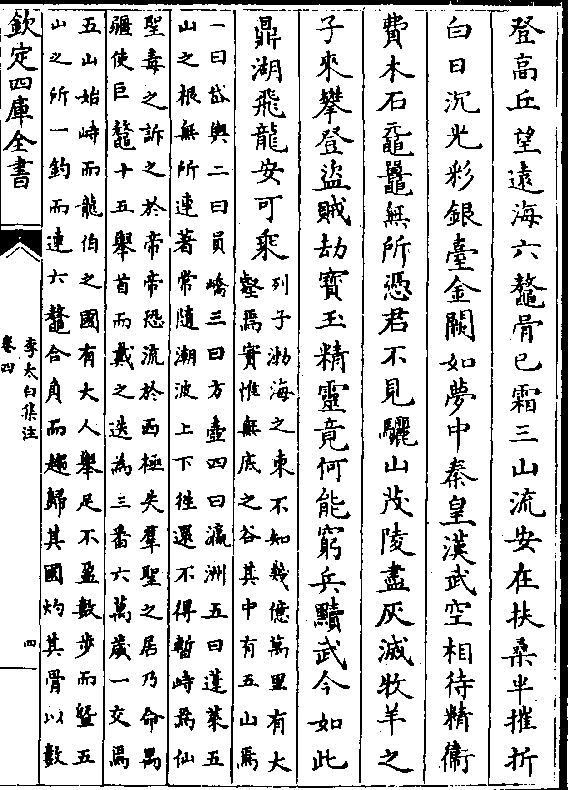 登高丘望遠海六鼇骨已霜三山流安在扶桑半摧折
白日沉光彩銀臺金闕如夢中秦皇漢武空相待精衞
費木石黿鼉無所憑君不見驪山茂陵盡灰滅牧羊之
子來攀登盜賊劫寶玉精靈竟何能窮兵黷武今如此
鼎湖飛龍安可乘
列子渤海之東不知幾億萬里有大
壑焉實惟無底之谷其中有五山焉
一曰岱輿二曰員嶠三曰方壺四曰瀛洲五曰蓬萊五
山之根無所連著常隨潮波上下徃還不得暫峙焉仙
聖毒之訴之於帝帝恐流於西極失羣聖之居乃命禺
疆使巨鼇十五舉首而戴之迭為三番六萬歲一交焉
五山始峙而龍伯之國有大人舉足不盈數步而曁五
山之所一釣而連六鼇合負而趨歸其國灼其骨以數
欽定四庫全書
李太白集注
卷四
四